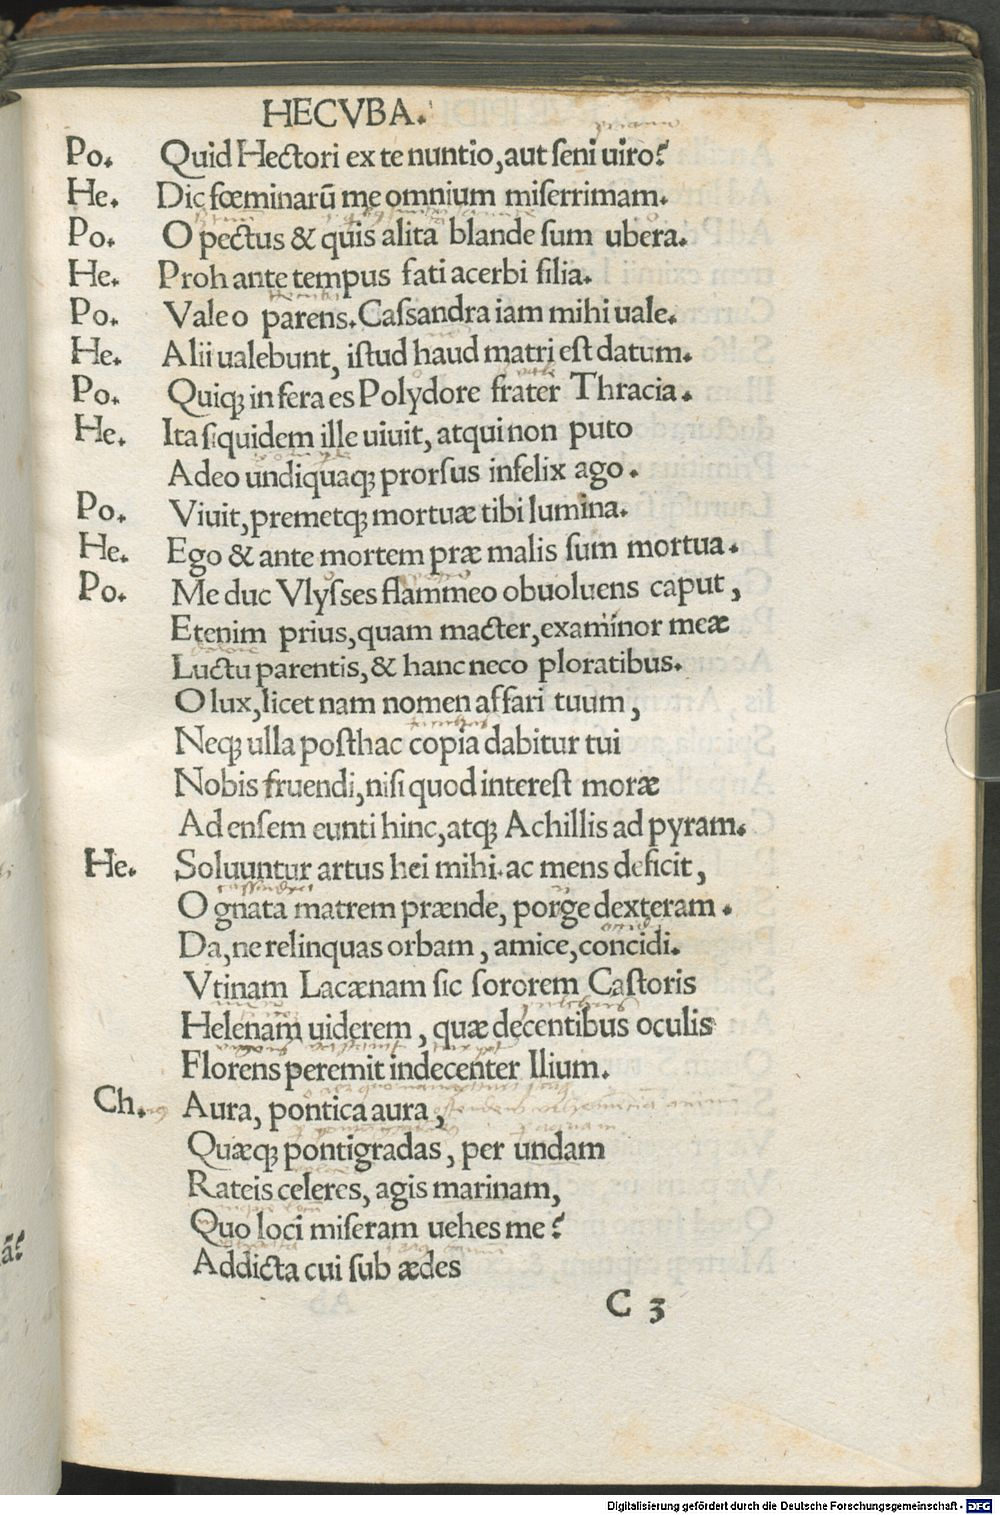 HECVBA.
priamo
Po. Quid Hectori ex te nuntio, aut seni uiro?
He. Dic fœminarū me omnium miserrimam.
Po. O pectus & quîs alita blande sum ubera.
He. Proh ante tempus fati acerbi filia.
Po. Vale o parens. Cassandra iam mihi uale.
He. Alii ualebunt, istud haud matri est datum.
Po. Quiqꝫ in fera es Polydore frater Thracia.
He. Ita siquidem ille uiuit, atqui non puto
Adeo undiquaqꝫ prorsus infelix ago.
Po. Viuit, premetqꝫ mortuæ tibi lumina.
He. Ego & ante mortem præ malis sum mortua.
Po. Me duc Vlysses flammeo obuoluens caput,
Etenim prius, quam macter, examinor meæ
dolore
Luctu parentis, & hanc neco ploratibus.
O lux, licet nam nomen affari tuum,
Neqꝫ ulla posthac copia dabitur tui
Nobis fruendi, nisi quod interest moræ
Ad ensem eunti hinc, atqꝫ Achillis ad pyram.
He. Soluuntur artus hei mihi. ac mens deficit,
O gnata matrem prænde, porge dexteram.
Da, ne relinquas orbam, amice, concidi.
Vtinam Lacænam sic sororem Castoris
Helenam uiderem, quæ decentibus oculis
Florens peremit indecenter Ilium.
Ch. Aura, pontica aura,
Quæqꝫ pontigradas, per undam
Rateis celeres, agis marinam,
Quo loci miseram uehes me?
Addicta cui sub ædes
C 3
ã?
Digitalisierung gefördert durch die Deutsche Forschungsgemeinschaft - DFG